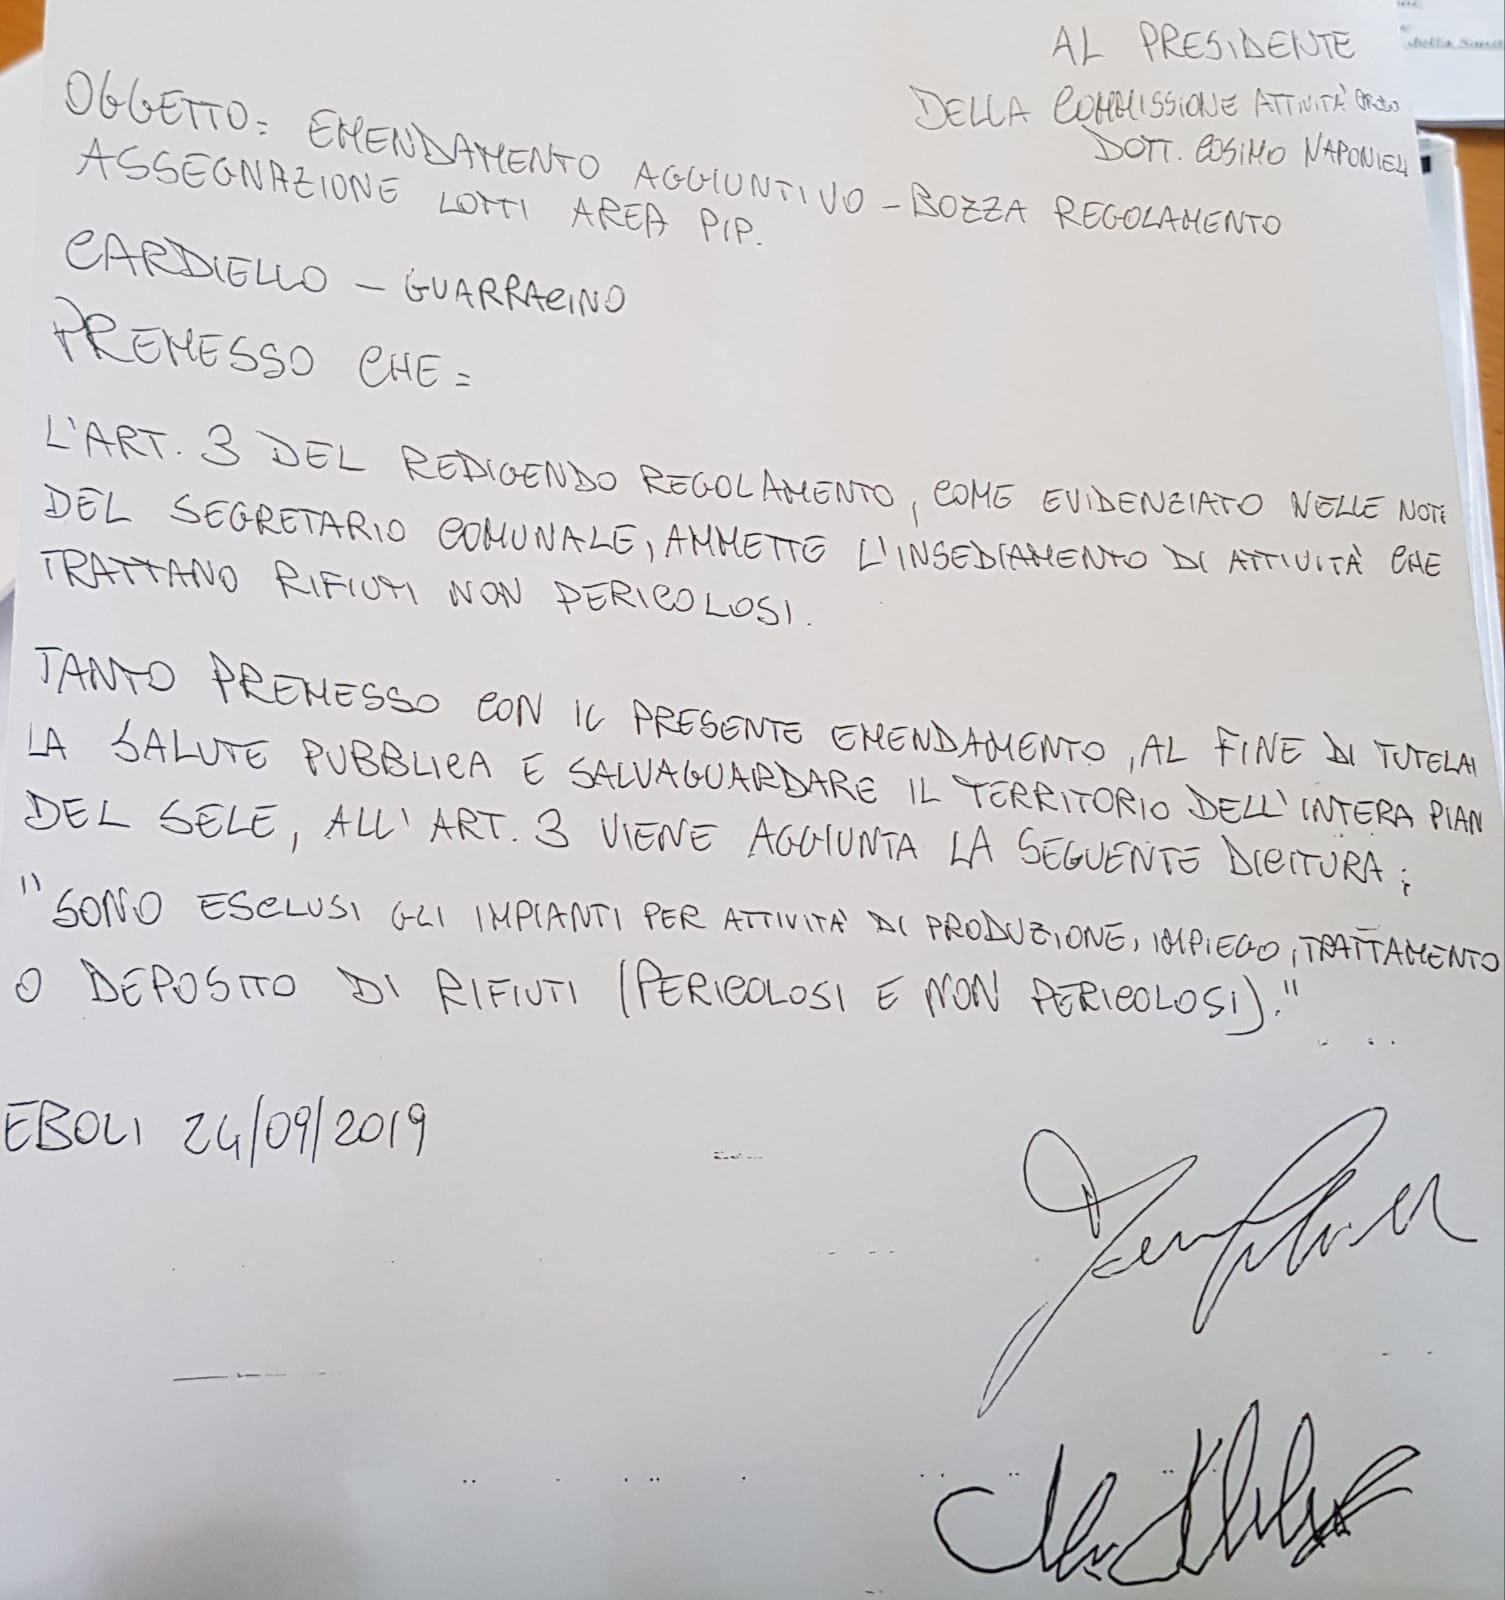 AL PRESIDENTE
DELLA COMMISSIONE ATTIVITÀ
DOTT. COSIMO NAPONIELI
OGGETTO: EMENDAMENTO AGGIUNTIVO - BOZZA REGOLAMENTO
ASSEGNAZIONE LOTTI AREA PIP.
CARDIELLO - GUARRACINO
PREMESSO CHE =
L'ART. 3 DEL REDIGENDO REGOLAMENTO, COME EVIDENZIATO NELLE NOTE
DEL SEGRETARIO COMUNALE, AMMETTE L'INSEDIAMENTO DI ATTIVITÀ CHE
TRATTANO RIFIUTI NON PERICOLOSI.
TANTO PREMESSO CON IL PRESENTE EMENDAMENTO, AL FINE DI TUTELA
LA SALUTE PUBBLICA E SALVAGUARDARE IL TERRITORIO DELL'INTERA PIAN
DEL SELE, ALL'ART. 3 VIENE AGGIUNTA LA SEGUENTE DICITURA;
"SONO ESCLUSI GLI IMPIANTI PER ATTIVITÀ DI PRODUZIONE, IMPIEGO, TRATTAMENTO
O DEPOSITO DI RIFIUTI (PERICOLOSI E NON PERICOLOSI)."
EBOLI 24/09/2019